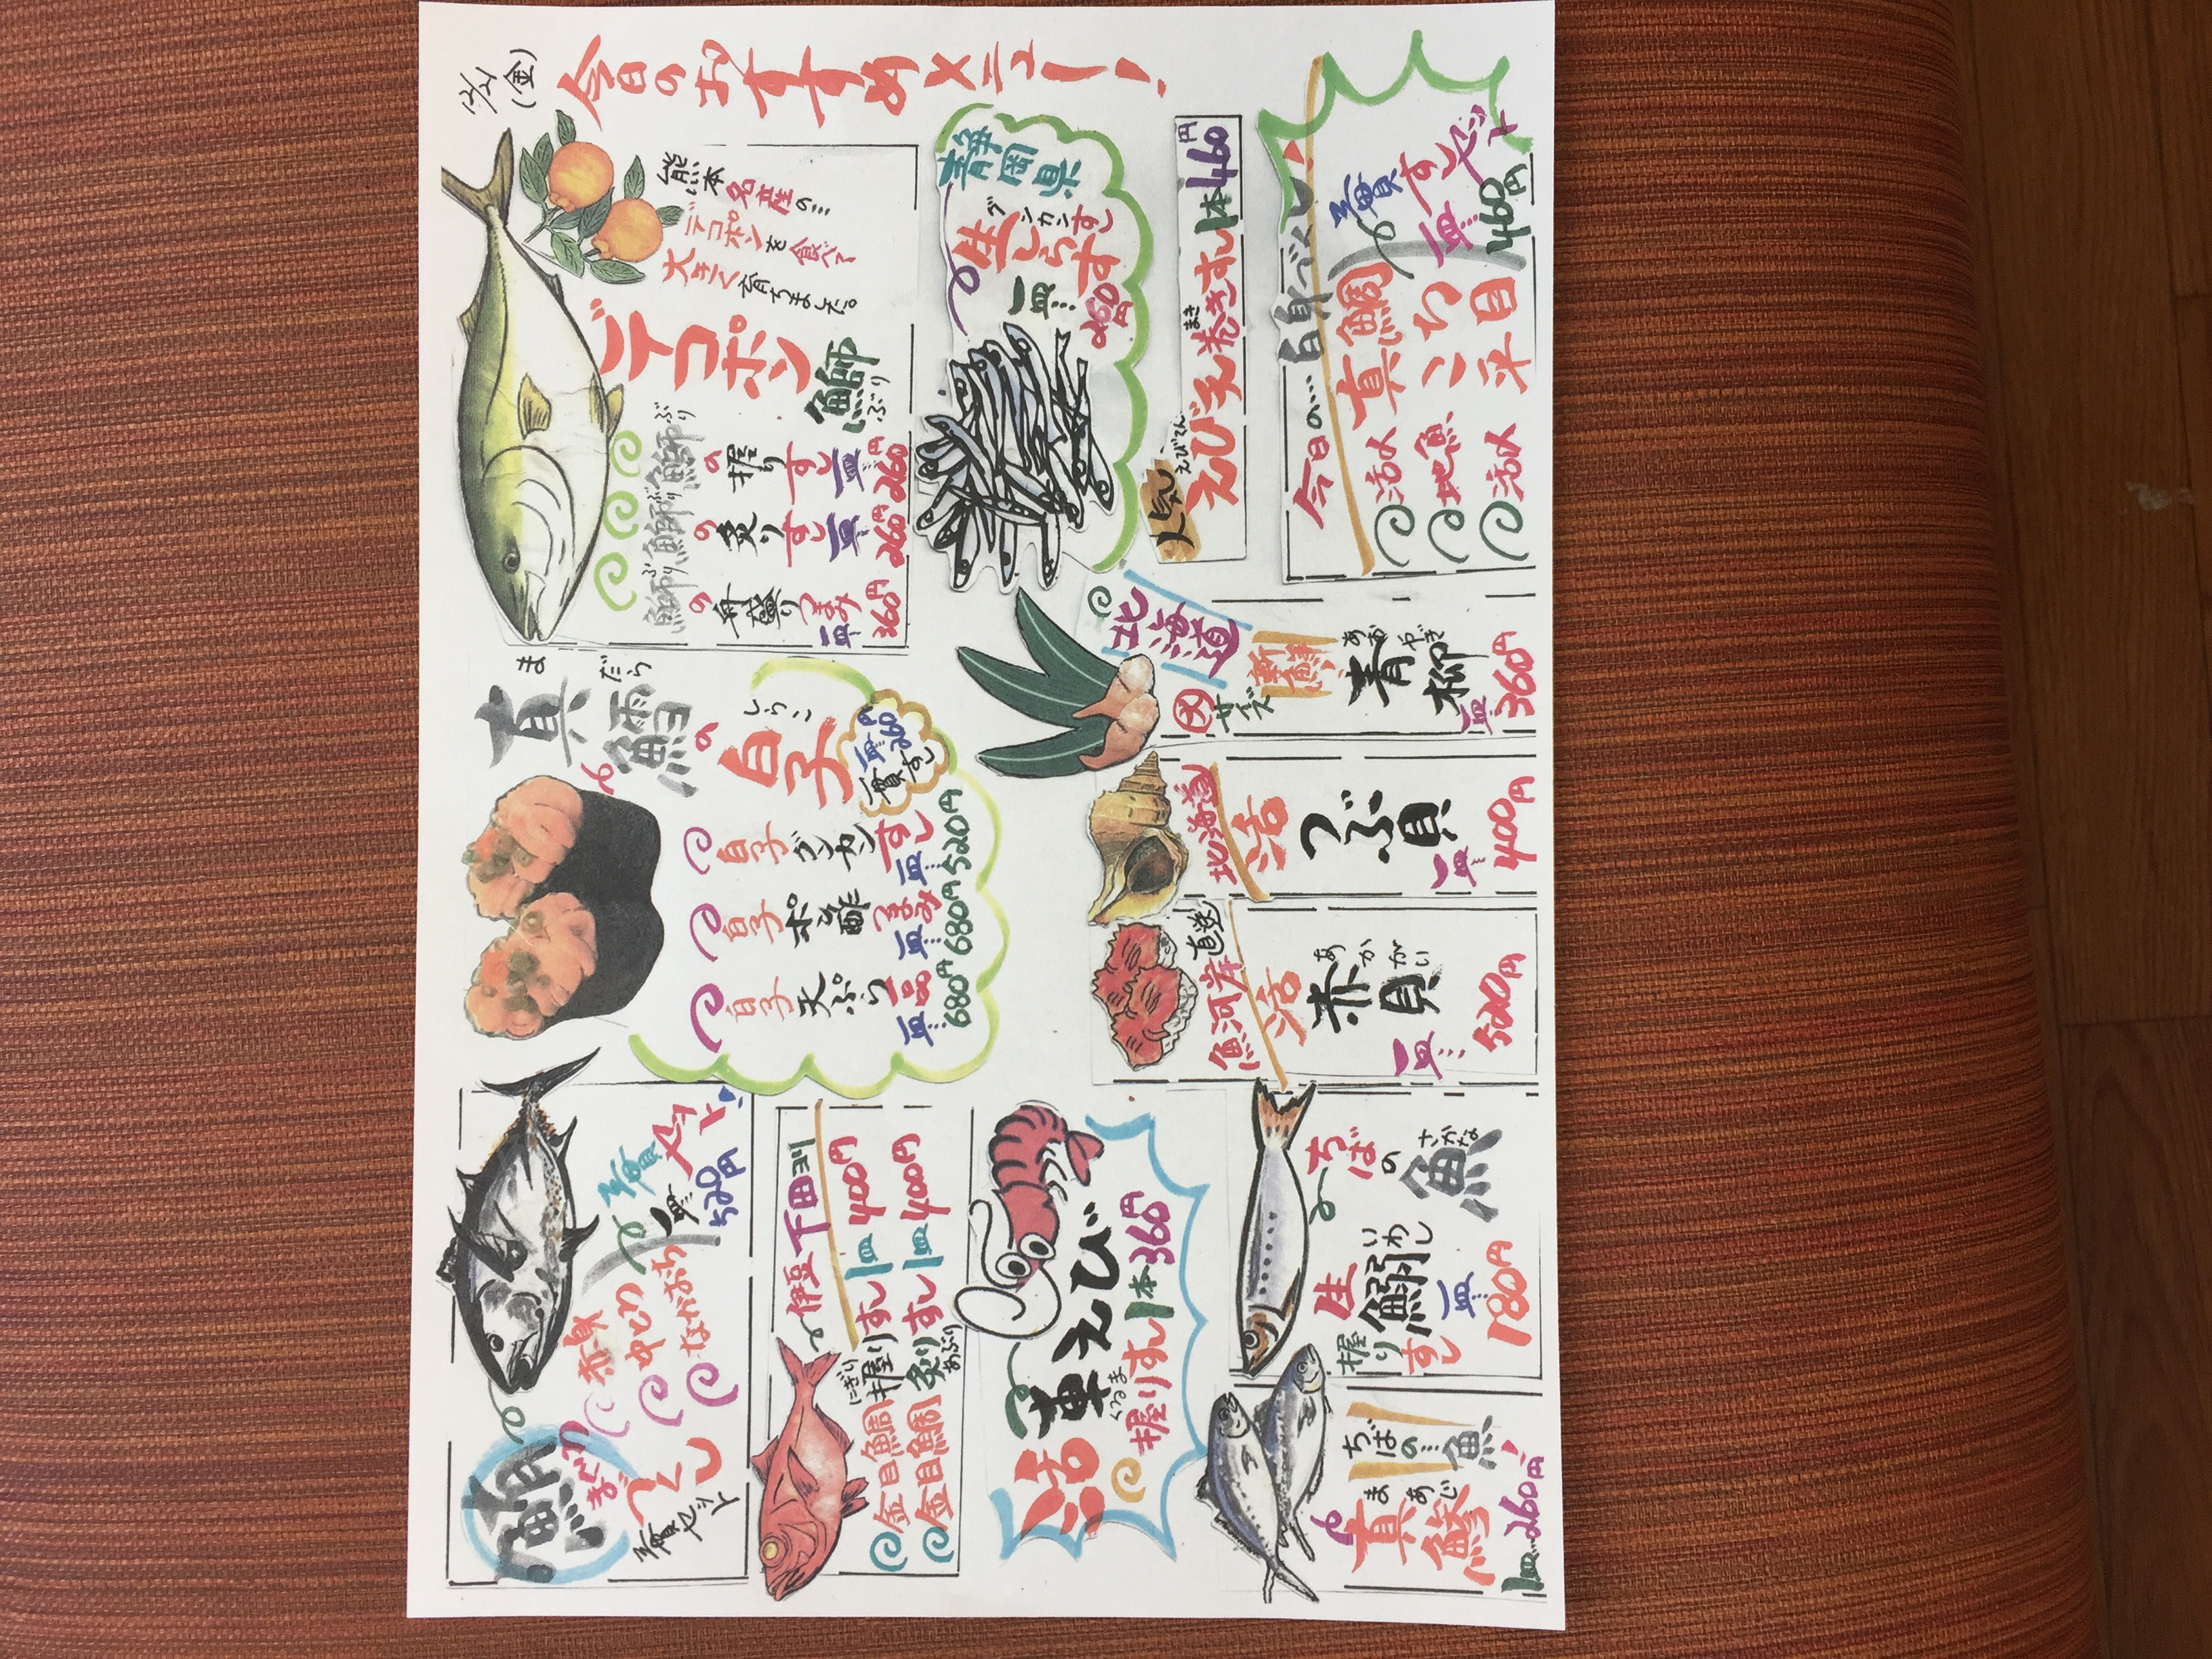 12/21
(金)
今日のおすすめメニュー!
熊本名産の…
デコポンを食べて
大きく育ちました。
デコポン
鰤
ぶり
鰤ぶりの握りすし一皿260円
鰤ぶりの炙りすし一皿260円
鰤ぶりの舟盛りつまみ一皿360円
静岡県
グンカンすし
生しらす
一皿…260円
人気
えびてん
えび天巻きすし1本460円
まき
今日の…白身
三貫すしセット
一皿…460円
活〆真鯛
地魚こち
活〆平目
まだら
真鱈の
しらこ
白子
一貫すし
一皿260円
白子グンカンすし一皿…520円
白子ポン酢つまみ一皿…680円
白子天ぷら一品一皿…680円
北海道
大サイズ
新鮮
あおやぎ
青柳
一皿…360円
北海道
活
つぶ貝
一皿…400円
魚河岸直送
活
あかがい
赤貝
一皿…520円
鮪
まぐろ
づくし
三貫セット
赤身
中とろ
ながおち
三貫セット
一皿520円
伊豆下田より
にぎり
金目鯛握りすし1皿400円
金目鯛炙りすし1皿400円
あぶり
活車えび
くるま
握りすし1本360円
ちばの魚
さかな
生鰯
いわし
握りすし
一皿180円
ちばの…魚
まあじ
真鯵
1皿…260円